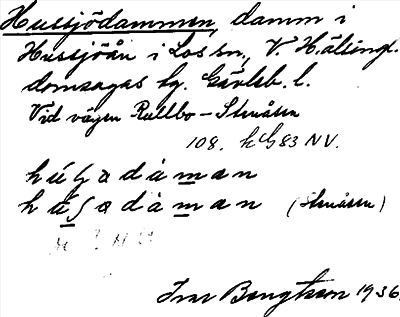 Hussjödammen, damm i
Hussjöån i Los sn, V. Hälsingl.
domsagas tg. Gävleb. l.
Vid vägen Rullbo – Stenåsen
108. hG83 NV.
húʃadàman
húʃadàman (Stenåsen)
Ivar Bengtsson 1936.